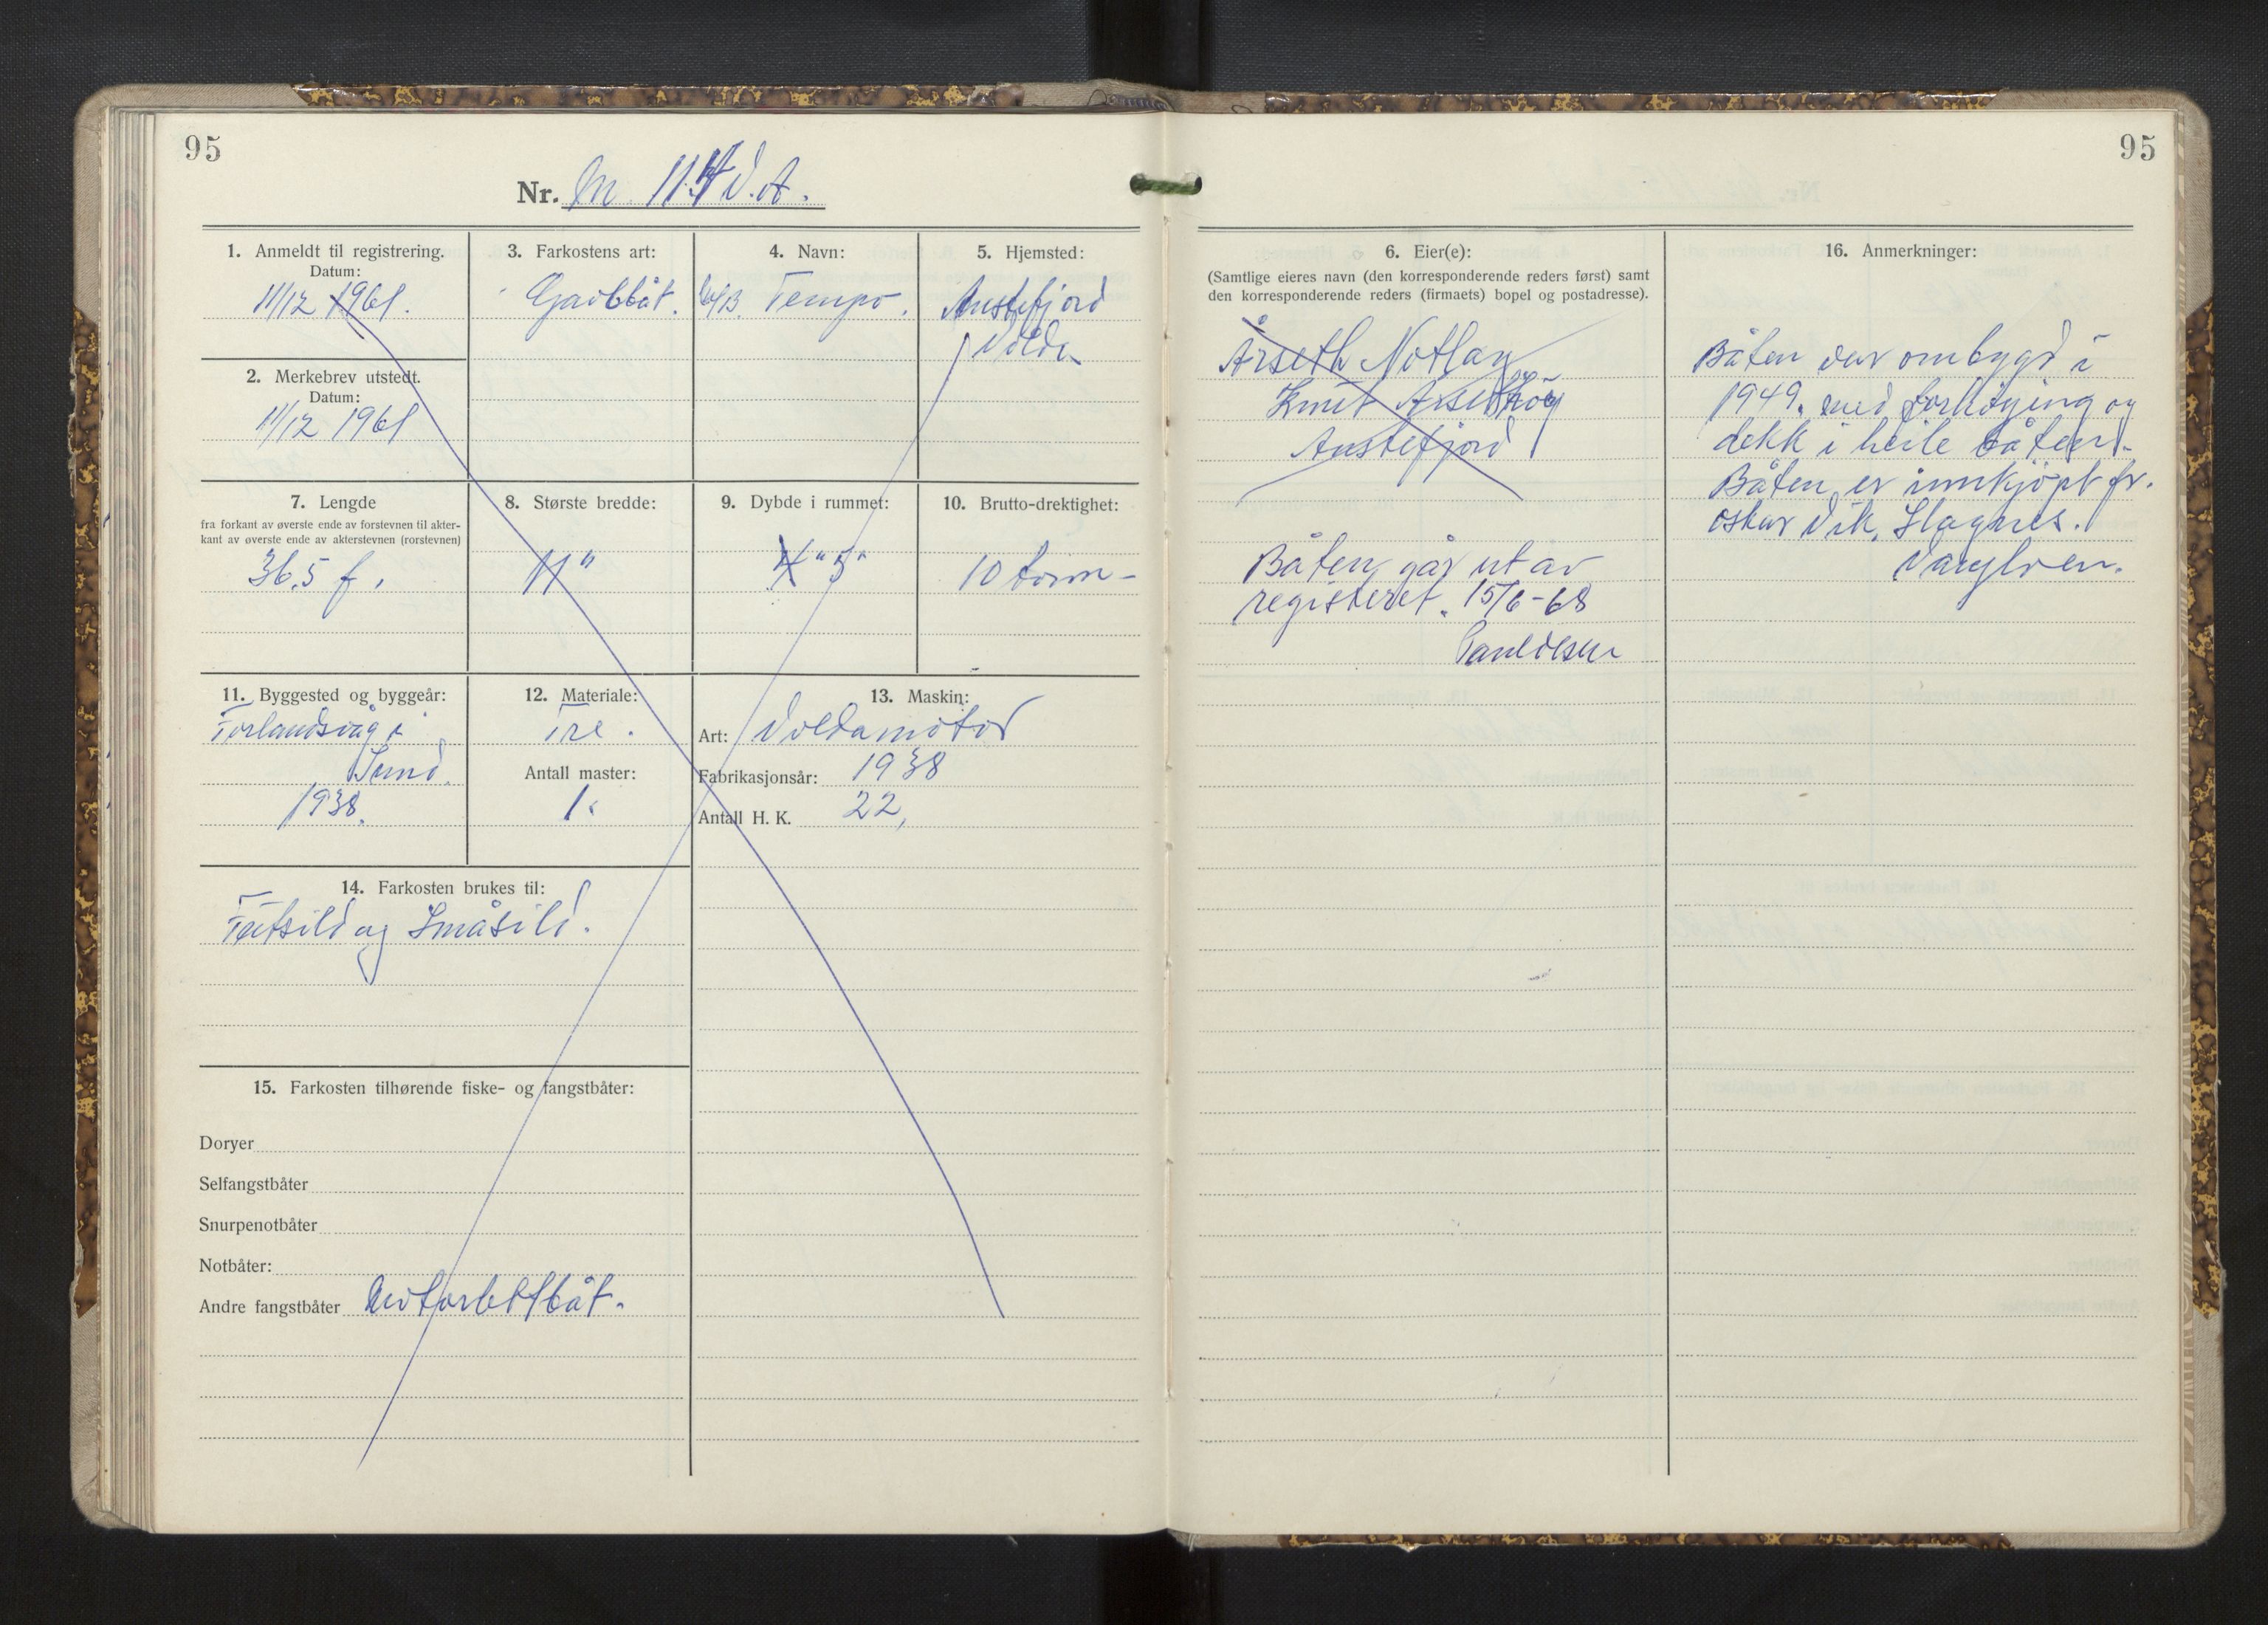 95
Nr. M. 114 V.A.
1. Anmeldt til registrering.
Datum:
11/12 1961.
2. Merkebrev utstedt.
Datum:
11/12 1961
3. Farkostens art:
Gavlbåt.
4. Navn:
M/B. Tempo.
5. Hjemsted:
Austefjord
Volda
7. Lengde
fra forkant av øverste ende av forstevnen til akter-
kant av øverste ende av akterstevnen (rorstevnen)
36.5 f.
8. Største bredde:
11"
9. Dybde i rummet:
4" 5"
10. Brutto-drektighet:
10 tonn-
11. Byggested og byggeår:
Forlandsvåg i
Sund.
1938.
12. Materiale:
Tre.
Antall master:
1.
13. Maskin:
Art: Voldamotor
Fabrikasjonsår: 1938
Antall H. K. 22,
14. Farkosten brukes til:
Feitsild og Småsild.
15. Farkosten tilhørende fiske- og fangstbåter:
Doryer
Selfangstbåter
Snurpenotbåter
Notbåter:
Andre fangstbåter
95
6. Eier(e):
(Samtlige eieres navn (den korresponderende reders først) samt
den korresponderende reders (firmaets) bopel og postadresse).
Årseth Notlag
Knut
Austefjord
Båten går ut av
registeret. 15/6-68
16. Anmerkninger:
Båten var ombygd i
1949. med forhöying og
dekk i heile båten.
Båten er innkjöpt fr.
Oskar Vik, Slagnes.
Vanylven.